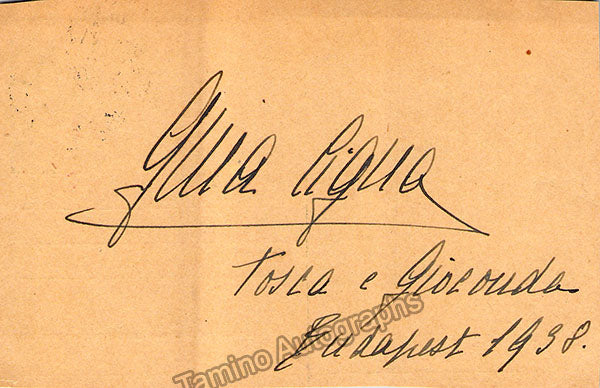 Gina Cigna
Tosca e Gioconda
Budapest 1938.
Tamino Autographs